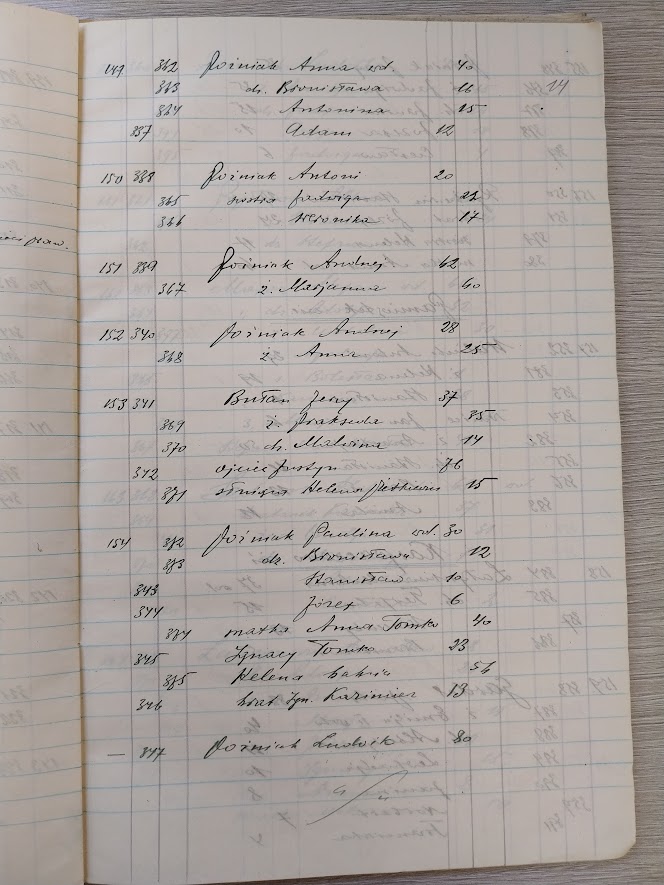 149. 362 Joźniak Anna wd. 40
363 dz. Bronisława 16 14
364 Antonina 15
337 Adam 12
150 338 Joźniak Antoni 20
365 siostra Jadwiga
366 Weronika 17
151 339 Joźniak Andrzej 42
367 ż. Marjanna 40
152 340 Joźniak Andrzej 28
368 ż. Anna 25
153 341 Bułan Jerzy 37
369 ż. Prakseda 35
370 dz. Malwina 14
342 ojciec Justyn 76
371 Helena 15
154 372 Joźniak Paulina wd. 30
373 dz. Bronisława 12
343 Stanisław 10
344 Józef 6
374 matka Anna Tomko 40
345 Ignacy Tomko 23
375 Helena 56
346 brat Ign. Kazimierz 13
— 347 Joźniak Ludwik 80